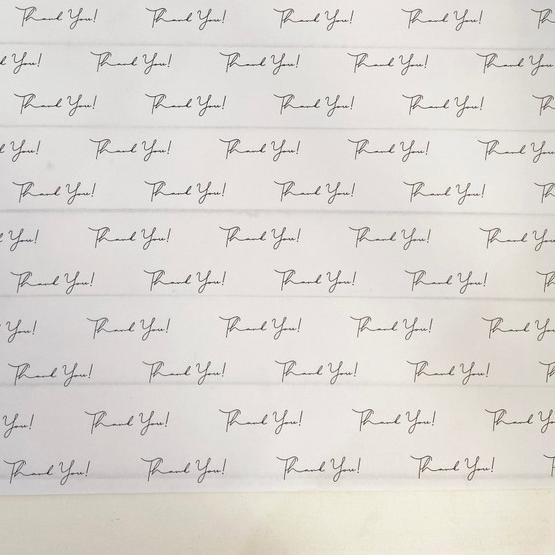 Thank You! Thank You! Thank You! Thank You!
You! Thank You! Thank You! Thank You! Thank You
Thank You! Thank You! Thank You! Thank You!
You! Thank You! Thank You! Thank You! Thank You
Thank You! Thank You! Thank You! Thank You!
You! Thank You! Thank You! Thank You! Thank Yo
Thank You! Thank You! Thank You! Thank You!
You! Thank You! Thank You! Thank You! Thank Yo
Thank You! Thank You! Thank You! Thank You!
You! Thank You! Thank You! Thank You! Thank Yo
Thank You! Thank You! Thank You! Thank You!